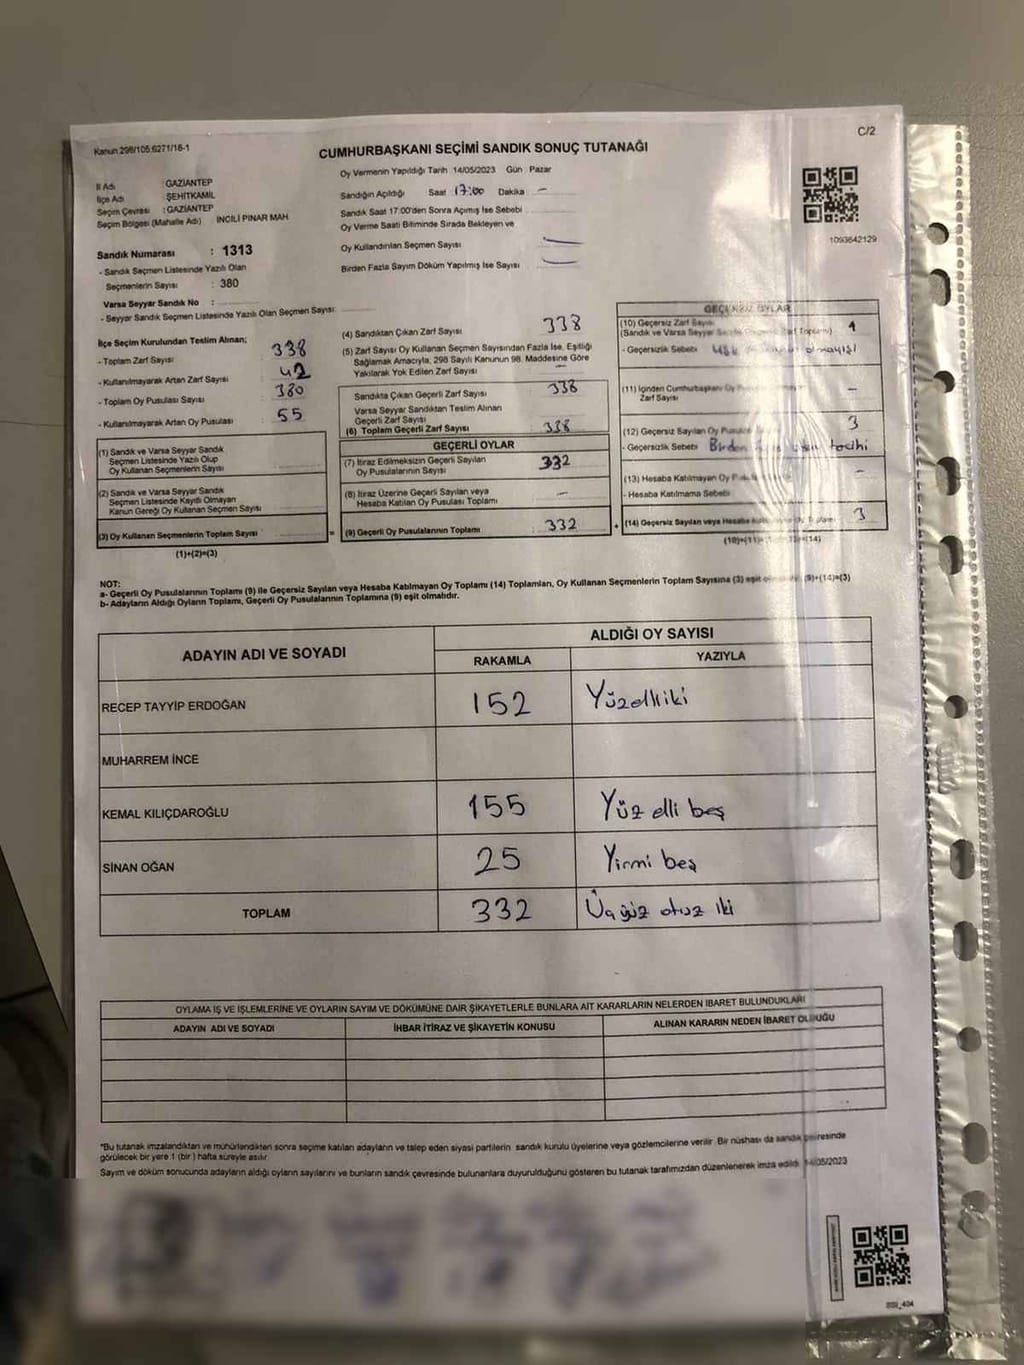 C/2
Kanun 298/105.6271/16-1
CUMHURBAŞKANI SEÇİMİ SANDIK SONUÇ TUTANAĞI
İl Adı : GAZİANTEP
İlçe Adı : ŞEHİTKAMİL
Seçim Çevresi : GAZİANTEP
Seçim Bölgesi (Mahalle Adı) İNCİLİ PINAR MAH
Sandık Numarası : 1313
- Sandık Seçmen Listesinde Yazılı Olan
Seçmenlerin Sayısı : 380
Varsa Seyyar Sandık No :
- Seyyar Sandık Seçmen Listesinde Yazılı Olan Seçmen Sayısı:
Oy Vermenin Yapıldığı Tarih 14/05/2023 Gün Pazar
Sandığın Açıldığı Saat 17:00 Dakika -
Sandık Saat 17:00'den Sonra Açımış İse Sebebi
Oy Verme Saati Bitiminde Sırada Bekleyen ve
Oy Kullandırılan Seçmen Sayısı
Birden Fazla Sayım Döküm Yapılmış İse Sayısı
1093642129
İlçe Seçim Kurulundan Teslim Alınan;
- Toplam Zarf Sayısı : 338
- Kullanılmayarak Artan Zarf Sayısı : 42
- Toplam Oy Pusulası Sayısı : 380
- Kullanılmayarak Artan Oy Pusulası : 55
(1) Sandık ve Varsa Seyyar Sandık
Seçmen Listesinde Yazılı Olup
Oy Kullanan Seçmenlerin Sayısı
(2) Sandık ve Varsa Seyyar Sandık
Seçmen Listesinde Kayıtlı Olmayan
Kanun Gereği Oy Kullanan Seçmen Sayısı
(3) Oy Kullanan Seçmenlerin Toplam Sayısı
(1)+(2)=(3)
(4) Sandıktan Çıkan Zarf Sayısı 338
(5) Zarf Sayısı Oy Kullanan Seçmen Sayısından Fazla İse, Eşitliği
Sağlamak Amacıyla, 298 Sayılı Kanunun 98. Maddesine Göre
Yakılarak Yok Edilen Zarf Sayısı -
Sandıkta Çıkan Geçerli Zarf Sayısı 338
Varsa Seyyar Sandıktan Teslim Alınan
Geçerli Zarf Sayısı
(6) Toplam Geçerli Zarf Sayısı 338
GEÇERLİ OYLAR
(7) İtiraz Edilmeksizin Geçerli Sayılan
Oy Pusulalarının Sayısı 332
(8) İtiraz Üzerine Geçerli Sayılan veya
Hesaba Katılan Oy Pusulası Toplamı -
= (9) Geçerli Oy Pusulalarının Toplamı 332
GEÇERSİZ OYLAR
(10) Geçersiz Zarf Sayısı
(Sandık ve Varsa Seyyar Zarf Toplamı) 1
- Geçersizlik Sebebi olmayışı
(11) İçinden Cumhurbaşkanı Oy
Zarf Sayısı -
(12) Geçersiz Sayılan Oy 3
- Geçersizlik Sebebi Birden tecihi
(13) Hesaba Katılmayan Oy -
- Hesaba Katılmama Sebebi
+ (14) Geçersiz Sayılan veya Hesaba Toplamı 3
NOT:
a- Geçerli Oy Pusulalarının Toplamı (9) ile Geçersiz Sayılan veya Hesaba Katılmayan Oy Toplamı (14) Toplamları, Oy Kullanan Seçmenlerin Toplam Sayısına (3) eşit (9)+(14)=(3)
b- Adayların Aldığı Oyların Toplamı, Geçerli Oy Pusulalarının Toplamına (9) eşit olmalıdır.
ADAYIN ADI VE SOYADI
ALDIĞI OY SAYISI
RAKAMLA YAZIYLA
RECEP TAYYİP ERDOĞAN 152 Yüzelliiki
MUHARREM İNCE
KEMAL KILIÇDAROĞLU 155 Yüz elli beş
SİNAN OĞAN 25 Yirmi beş
TOPLAM 332 Üçyüz otuz iki
OYLAMA İŞ VE İŞLEMLERİNE VE OYLARIN SAYIM VE DÖKÜMÜNE DAİR ŞİKAYETLERLE BUNLARA AİT KARARLARIN NELERDEN İBARET BULUNDUKLARI
ADAYIN ADI VE SOYADI İHBAR İTİRAZ VE ŞİKAYETİN KONUSU ALINAN KARARIN NEDEN İBARET OLDUĞU
"Bu tutanak imzalandıktan ve mühürlendikten sonra seçime katılan adayların ve talep eden siyasi partilerin sandık kurulu üyelerine veya gözlemcilerine verilir. Bir nüshası da sandık çevresinde
görülecek bir yere 1 (bir) hafta süreyle asılır.
Sayım ve döküm sonucunda adayların aldığı oyların sayılarını ve bunların sandık çevresinde bulunanlara duyurulduğunu gösteren bu tutanak tarafımızdan düzenlenerek imza edildi. 14/05/2023